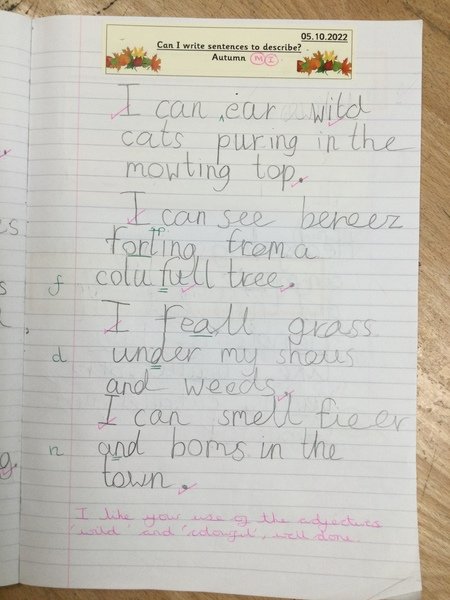 05.10.2022
Can I write sentences to describe?
Autumn M I
I can ear wild
cats puring in the
mowting top.
I can see bereez
forling from a
f colufull tree.
I feall grass
d under my shous
and weeds.
I can smell fieer
n and boms in the
town.
I like your use of the adjectives
'wild' and 'colourful', well done.